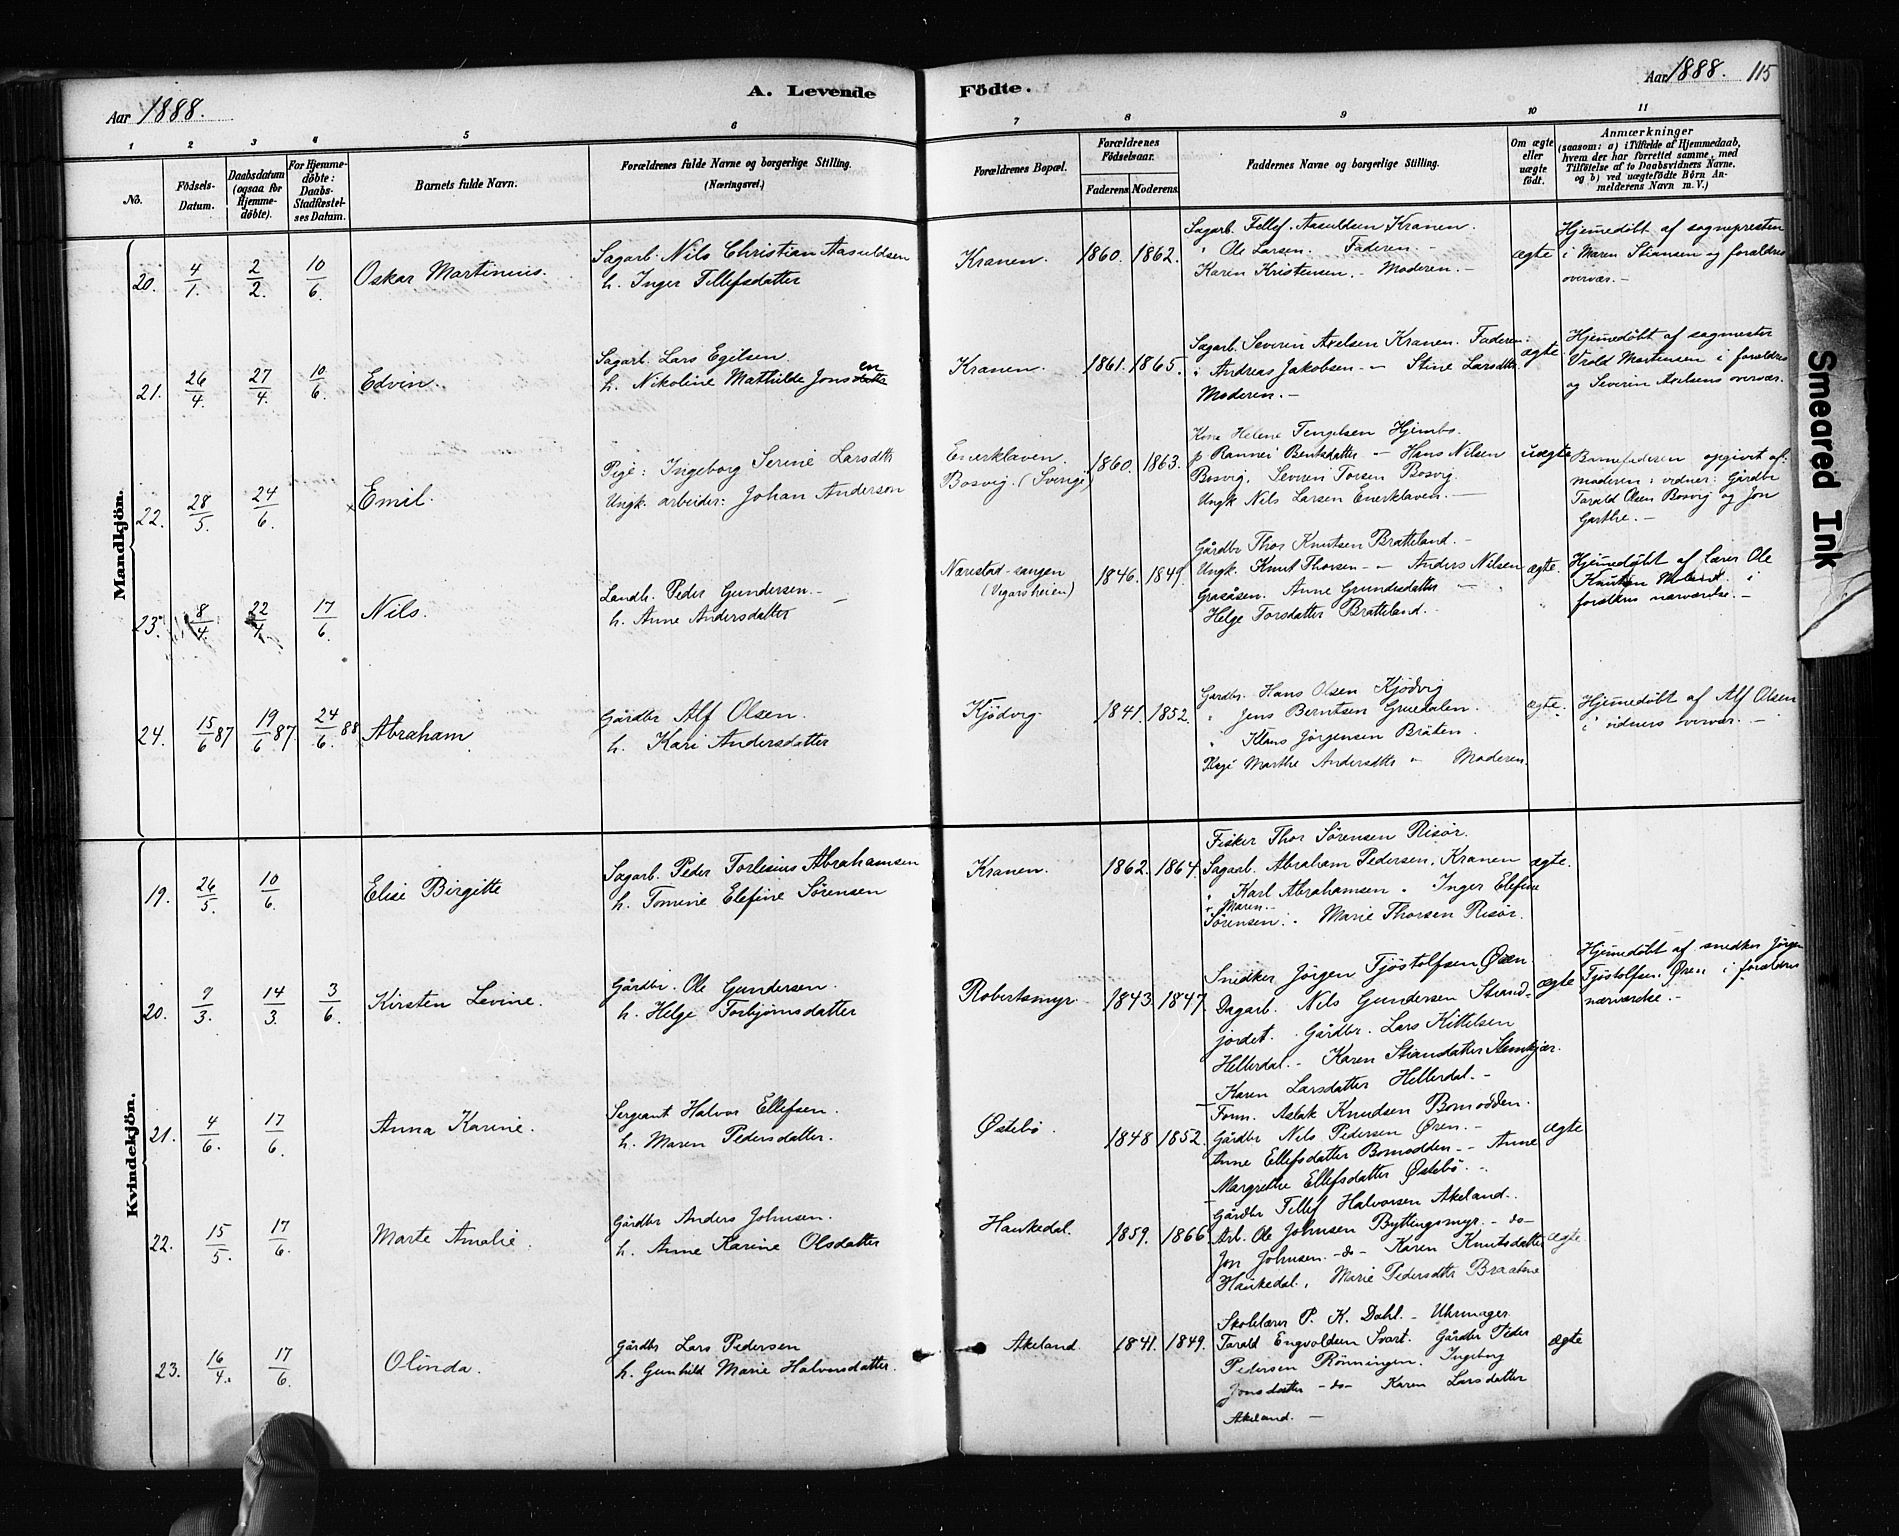 Aar 1888.
A. Levende
Födte.
Aar 1888. 115
1 2 3 4 5 6 7 8 9 10 11
No.
Födsels-Datum.
Daabsdatum (ogsaa for Hjemme-døbte).
For Hjemme-döbte: Daabs-Stadfæstel-ses Datum.
Barnets fulde Navn.
Forældrenes fulde Navne og borgerlige Stilling. (Næringsvei.)
Forældrenes Bopæl.
Forældrenes Födselsaar.
Faderens. Moderens.
Faddernes Navne og borgerlige Stilling.
Om ægte eller uægte födt.
Anmærkninger (saasom: a) i Tilfælde af Hjemmedaab, hvem der har forrettet samme, med Tilföielse af to Daabsvidners Navne. og b) ved uægtefödte Börn An-melderens Navn m. V.)
Mandkjön.
20. 4/1. 2/2. 10/6 Oskar Martinius.
Sagarb. Nils Christian Aasuldsen
h. Inger Tellefsdatter
Kranen. 1860. 1862.
Sagarb. Tellef Aasuldsen Kranen.
" Ole Larsen. Faderen. -
Karen Kristensen. - Moderen. -
ægte
Hjemedøbt af sognepresten
i Maren Stiansen og forældres
overvær. -
21. 26/4. 27/4. 10/6. Edvin.
Sagarb. Lars Egilsen.
h. Nikoline Mathilde Jonsdatter en
Kranen. 1861. 1865.
Sagarb. Severin Axelsen Kranen. Faderen.
" Andreas Jakobsen - " Stine Larsdttr
Moderen. -
ægte.
Hjemedøbt af sagmester
Vrold Mortensen i forældres
og Severin Axelsens overvær.
22. 28/5. 24/6. × Emil.
Pige: Ingeborg Serine Larsdttr
Ungk. arbeider: Johan Anderson
Enerklaven.
Bosvig. (Sverige)
1860. 1863.
Kone Helene Tengelsen Hjembo.
p Rannei Bentsdatter - Hans Nilsen
Bosvig. Severin Torsen Bosvig.
Ungk Nils Larsen Enerklaven. -
uægte
Barnefaderen opgivet af
moderen: vidner: Gårdbr
Tarald Olsen Bosvig og Jon
Garthe. -
23. 8/4. 22/4. 17/6. Nils.
Landh. Peder Gundersen. -
h. Anne Andersdatter
Nærestad-sangen
(Vegarsheien)
1846. 1849.
Gårdbr Thor Knutsen Bratteland. -
Ungk. Knut Thorsen - " Anders Nilsen
Grasåsen. Anne Grundesdatter "
Helge Torsdatter Bratteland.
ægte.
Hjemedøbt af lærer Ole
Knutsen Moland i
forældres nærværelse. -
24. 15/6 87 19/6 87 24/6. 88 Abraham
Gårdbr Alf Olsen.
h. Kari Andersdatter
Kjödvig. 1841. 1852.
Gardbr. Hans Olsen Kjödvig
" Jens Berntsen Gruedalen.
" Klaus Jørgensen Bråten.
Pige Marthe Andersdttr " Moderen.
ægte.
Hjemedøbt af Alf Olsen
i vidners overvær. -
Kvindekjön.
19. 26/5. 10/6. Elise Birgitte
Sagarb. Peder Torlesius Abrahamsen
h. Tomine Elefine Sörensen
Kranen. 1862. 1864.
Fisker Thor Sörensen Risör.
Sagarb. Abraham Pedersen. Kranen
" Karl Abrahamsen " Inger Elefine
" Maren -
Sörensen. Marie Thorsen Risör.
ægte.
20. 7/3. 14/3. 3/6. Kirsten Levine.
Gårdbr. Ole Gundersen.
h. Helge Torbjørnsdatter
Robertsmyr. 1843. 1847.
Snedker Jörgen Tjöstolfsen Øren
Dagarb. Nils Gundersen Strand-
jordet. Gårdbr. Lars Kittelsen
Hellerdal. - Karen Stiansdatter Stemkjær.
Karen Larsdatter Hellerdal. -
ægte
Hjemedøbt af snedker Jörgen
Tjöstolfsen. Øren i forældres
nærværelse. -
21. 4/6. 17/6. Anna Karine.
Sergeant Halvor Ellefsen.
h. Maren Pedersdatter.
Østebö. 1848 1852.
Form. Aslak Knudsen Bomodden.
Gårdbr Nils Pedersen Øren. -
Anne Ellefsdatter Bomodden - - Anne
Margrethe Ellefsdatter Østebö. -
ægte
22. 15/5. 17/6. Marte Amalie.
Gårdbr Anders Johnsen.
h. Anne Karine Olsdatter
Haukedal. 1859. 1866.
Gårdbr Tellef Halvorsen Akeland.
Arb. Ole Johnsen Byttingsmyr. - do -
Jon Johnsen. - do - Karen Knutsdatter
Haukedal. Marie Pedersdttr Braatene
ægte.
23. 16/4. 17/6. Olinda.
Gårdbr Lars Pedersen
h. Gunhild Marie Halvorsdatter.
Akeland. 1841. 1849.
Skolelærer P. K. Dahl. - Uhrmager
Tarald Engvoldsen Svart. Gårdbr Peder
Pedersen Rönningen. Ingeborg
Jonsdatter - do - Karen Larsdatter
Akeland. -
ægte
Smeared Ink